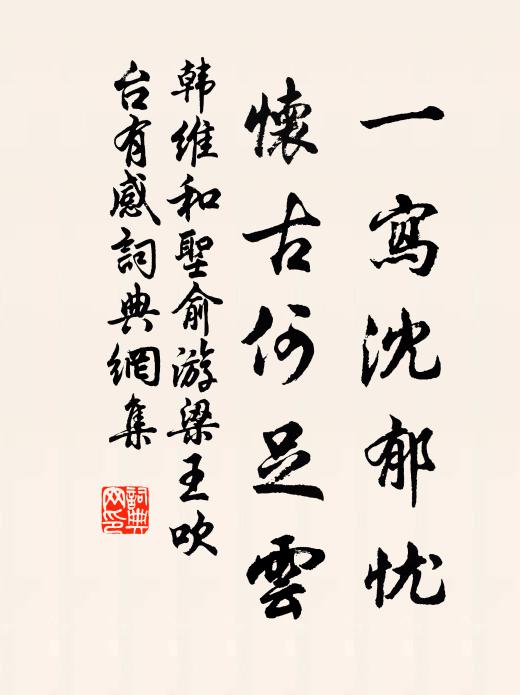 一寫沈郁忧
懷古何足雲
韩維和聖俞游梁王吹
台有感詞典網集
詞典网印